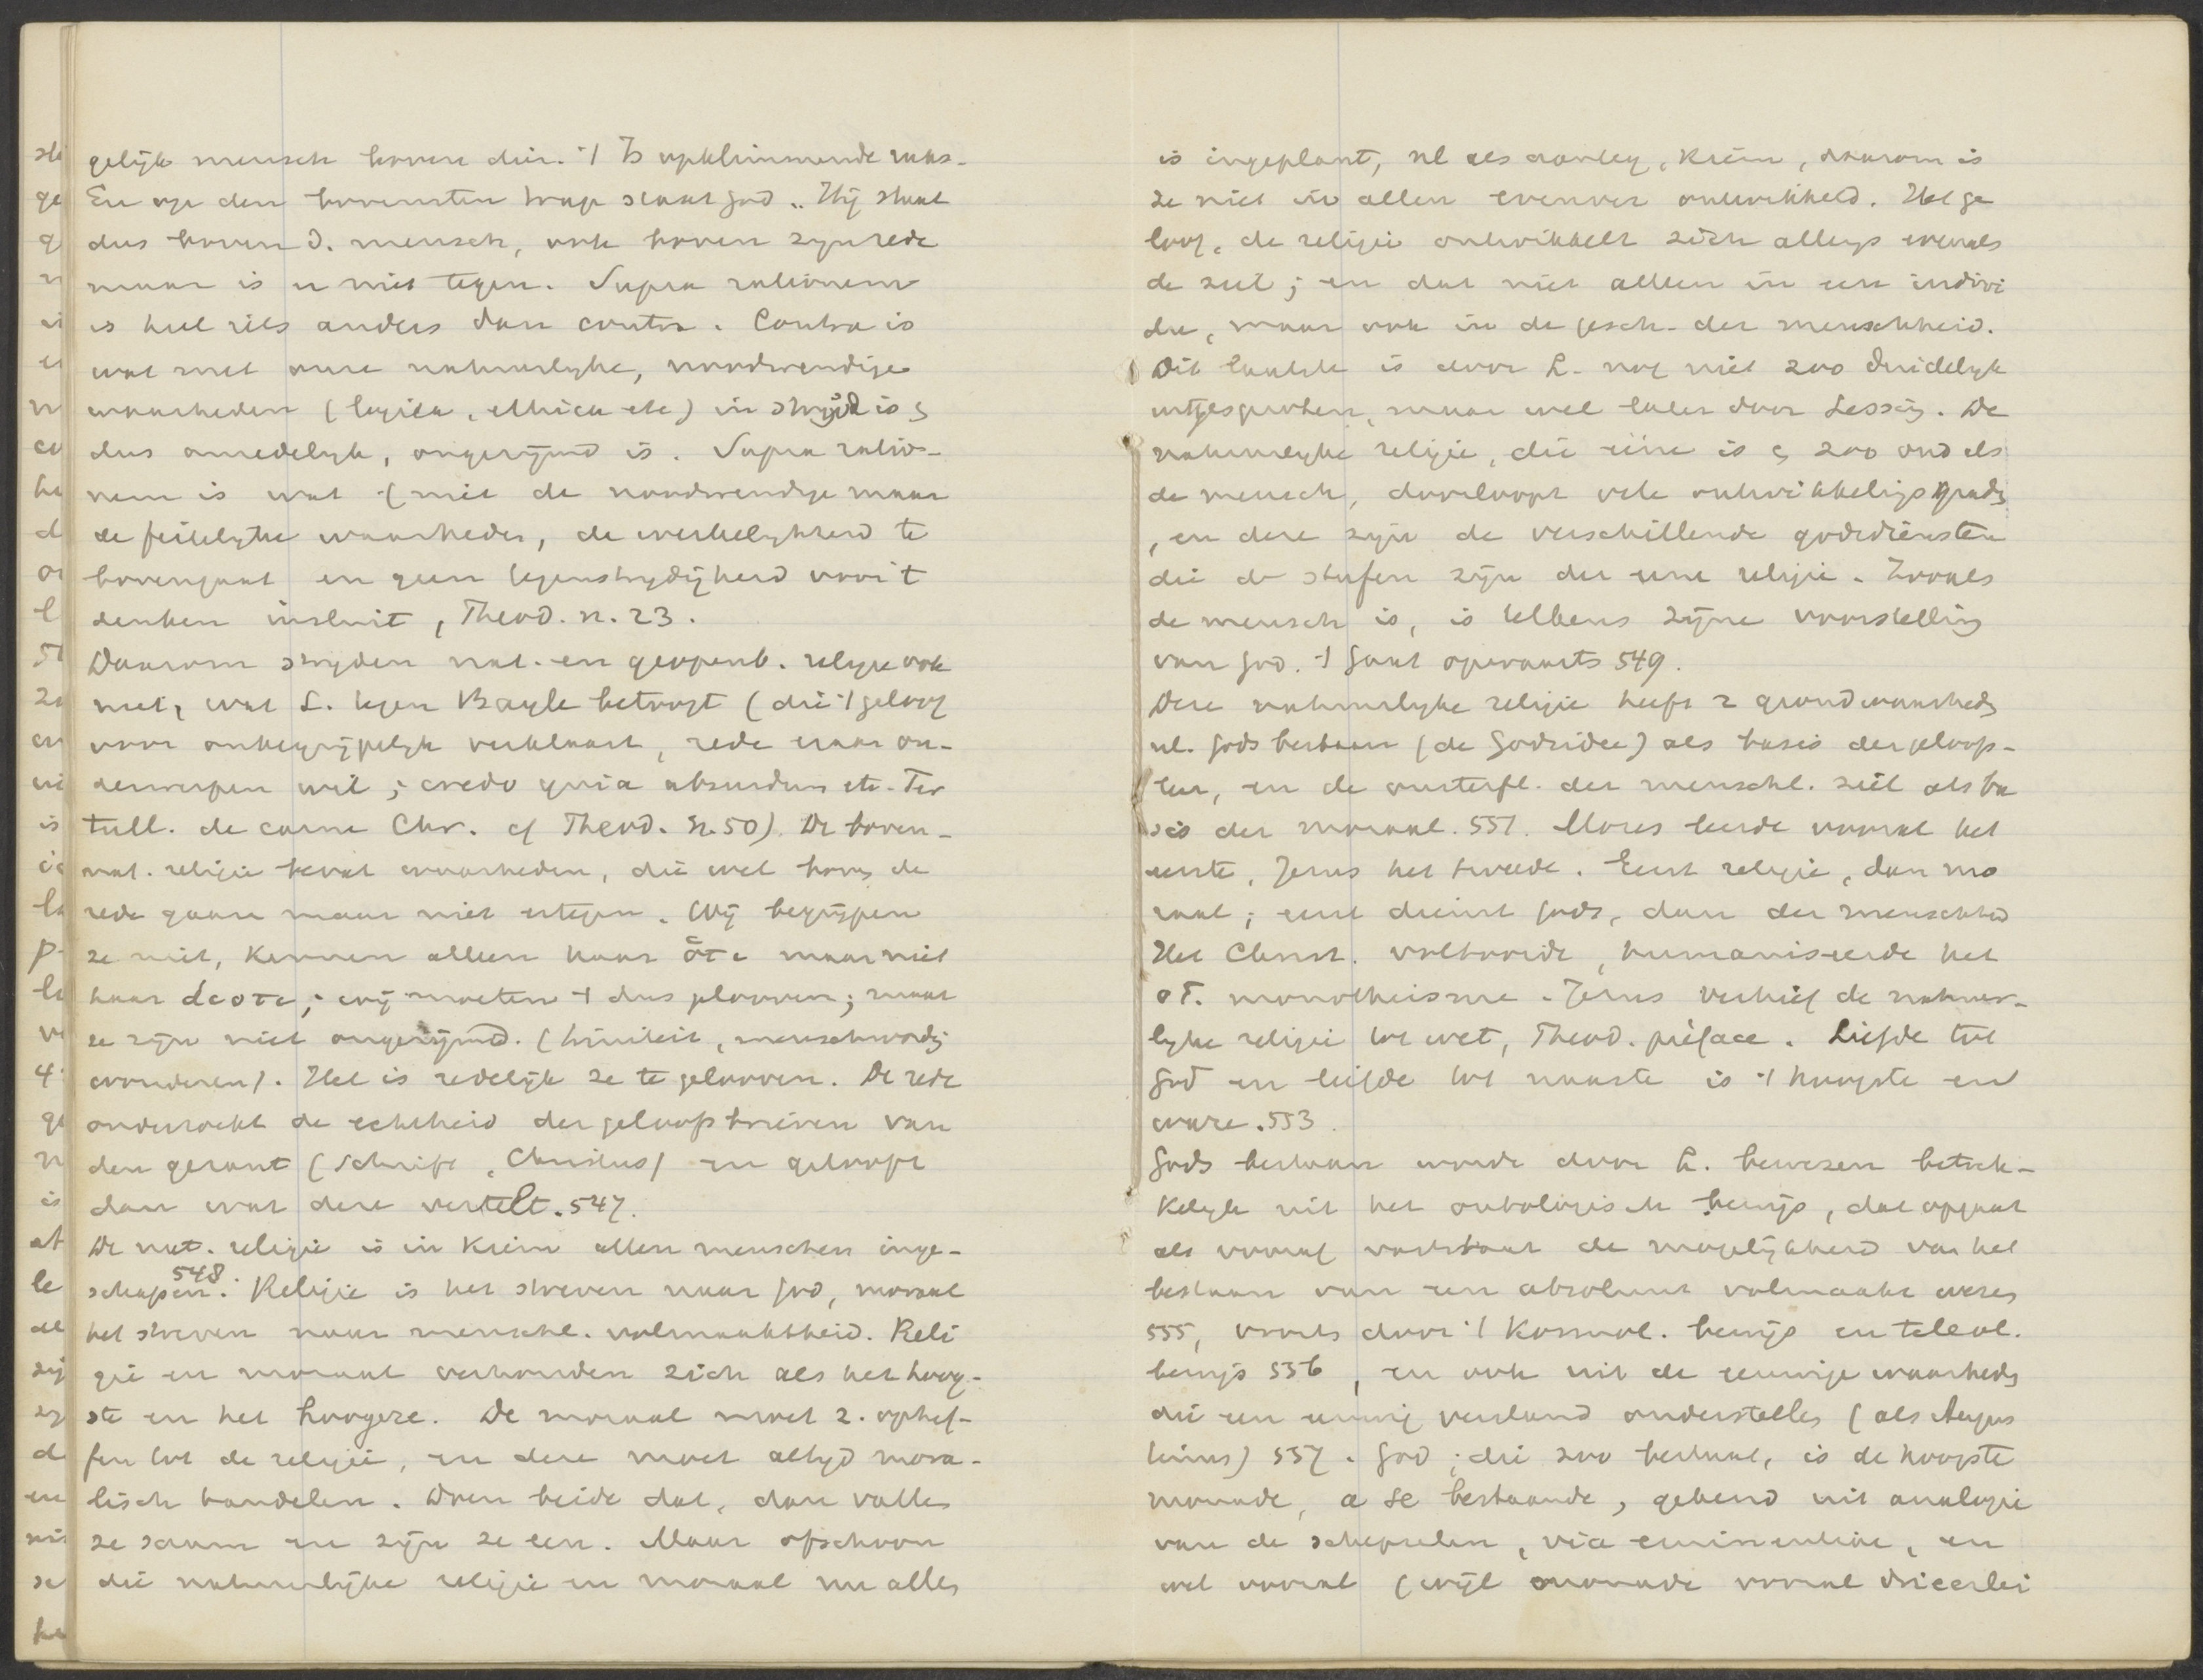 gelijk mensch boven dier. 't Is opklimmende reeks.
En op den bovensten trap staat God.. Hij staat
dus boven d. mensch, ook boven zijn rede
maar is er niet tegen. Supra rationem
is heel iets anders dan contra. Contra is
wat met onze natuurlyke, noodwendige
waarheden (logica, ethica etc) in strijd is
dus onredelyk, ongerijmd is. Supra ratio-
nem is wat (niet de noodwendige maar
de feitelyke waarheden, de werkelykheid te
bovengaat en geen tegenstrydigheid voor 't
denken insluit, Theod. n. 23.
Daarom stryden nat. en geopenb. religie ook
niet, wat L. tegen Bayle betoogt (die 't geloof
voor onbegrijpelyk verklaart, rede eraan on-
derwerpen wil; credo quia absurdum etc. Ter
tull. de carne Chr. cf Theod. n. 50). De boven-
nat. religie bevat waarheden, die wel boven de
rede gaan maar niet ertegen. Wij begrijpen
ze niet, kennen alleen haar ὅτι maar niet
haar διοτι; wij moeten 't dus gelooven; maar
ze zijn niet ongerijmd. (triniteit, menschwording
wonderen). Het is redelijk ze te gelooven. De rede
onderzoekt de echtheid der geloofsbrieven van
den gezant (Schrift, Christus) en gelooft
dan wat deze vertelt. 547.
De nat. religie is in kiem allen menschen inge-
schapen 548. Religie is het streven naar God, moraal
het streven naar menschl. volmaaktheid. Reli
gie en moraal verhouden zich als het hoog-
ste en het hoogere. De moraal moet z. ophef-
fen tot de religie, en deze moet altyd mora-
lisch handelen. Doen beide dat, dan vallen
ze saam en zijn ze een. Maar ofschoon
die natuurlijke religie en moraal nu allen
is ingeplant, nl als aanleg, kiem, daarom is
ze niet in allen evenver ontwikkeld. Het ge
loof, de religie ontwikkelt zich allengs evenals
de ziel; en dat niet alleen in een indivi
du, maar ook in de gesch. der menschheid.
Dit laatste is door L. nog niet zoo duidelyk
uitgesproken, maar wel later door Lessing. De
natuurlyke religie, die eene is zoo oud als
de mensch, doorloopt vele ontwikkelings graden
, en deze zijn de verschillende godsdiensten
die de stufen zijn der eene religie. Zooals
de mensch is, is telkens zijne voorstelling
van God. 't Gaat opwaarts 549.
Deze natuurlyke religie heeft 2 grondwaarheden
nl. Gods bestaan (de Godsidee) als basis der geloofs-
leer, en de onsterfl. der menschl. ziel als ba
sis der moraal. 551. Mozes leerde vooral het
eerste, Jezus het tweede. Eerst religie, dan mo
raal; eerst dienst Gods, dan der menschheid
Het Christ. voltooide, humaniseerde het
OT. monotheisme. Jezus verhief de natuur-
lyke religie tot wet, Theod. préface. Liefde tot
God en liefde tot naaste is 't hoogste en
ware. 553.
Gods bestaan wordt door L. bewezen betrek-
kelyk uit het ontologisch bewijs, dat opgaat
als vooraf vaststaat de mogelijkheid van het
bestaan van een absoluut volmaakt wezen
555, voorts door 't kosmol. bewijs en teleol.
bewijs 556, en ook uit de eeuwige waarheden
die een eeuwig verstand onderstellen (als Augus
tinus) 557. God, die zoo bestaat, is de hoogste
monade, a se bestaande, gekend uit analogie
van de schepselen, via eminentiae, en
wel vooral (wijl monade vooral drieerlei